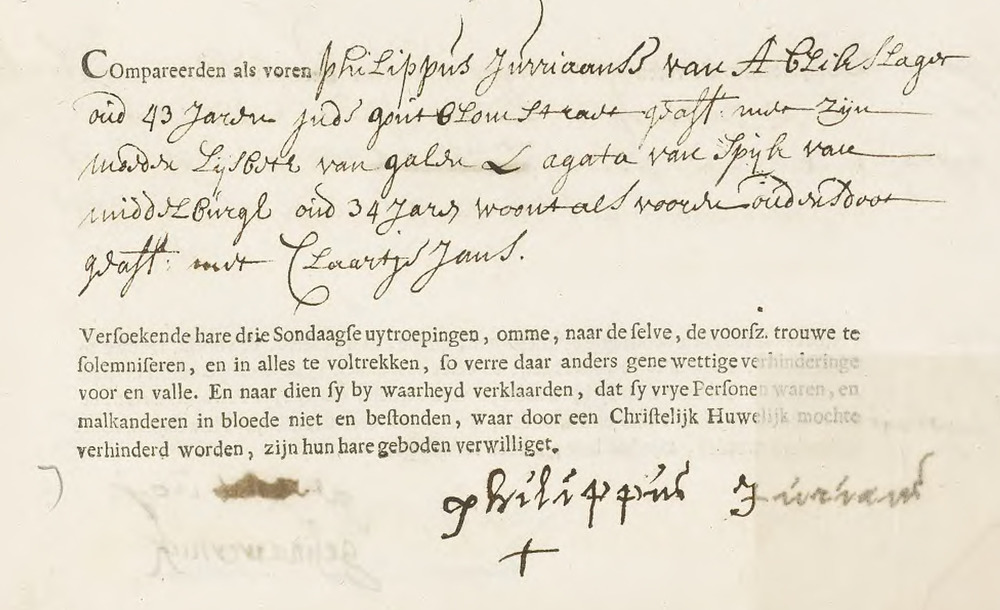 Compareerden als voren Philippus Jurriaanss van A blikslager
oud 43 Jaren inde goutblomstraet geast: met zijn
moeder Lijsbeth van galen & agata van Spijk van
middelburgh oud 34 Jaren woont als vooren ouders doot
geast: met Claartje Jans.
Versoekende hare drie Sondaagse uytroepingen, omme, naar de selve, de voorsz. trouwe te
solemniseren, en in alles te voltrekken, so verre daar anders gene wettige verhinderinge
voor en valle. En naar dien sy by waarheyd verklaarden, dat sy vrye Persone waren, en
malkanderen in bloede niet en bestonden, waar door een Christelijk Huwelijk mochte
verhinderd worden, zijn hun hare geboden verwilliget.
philippus Juriaans